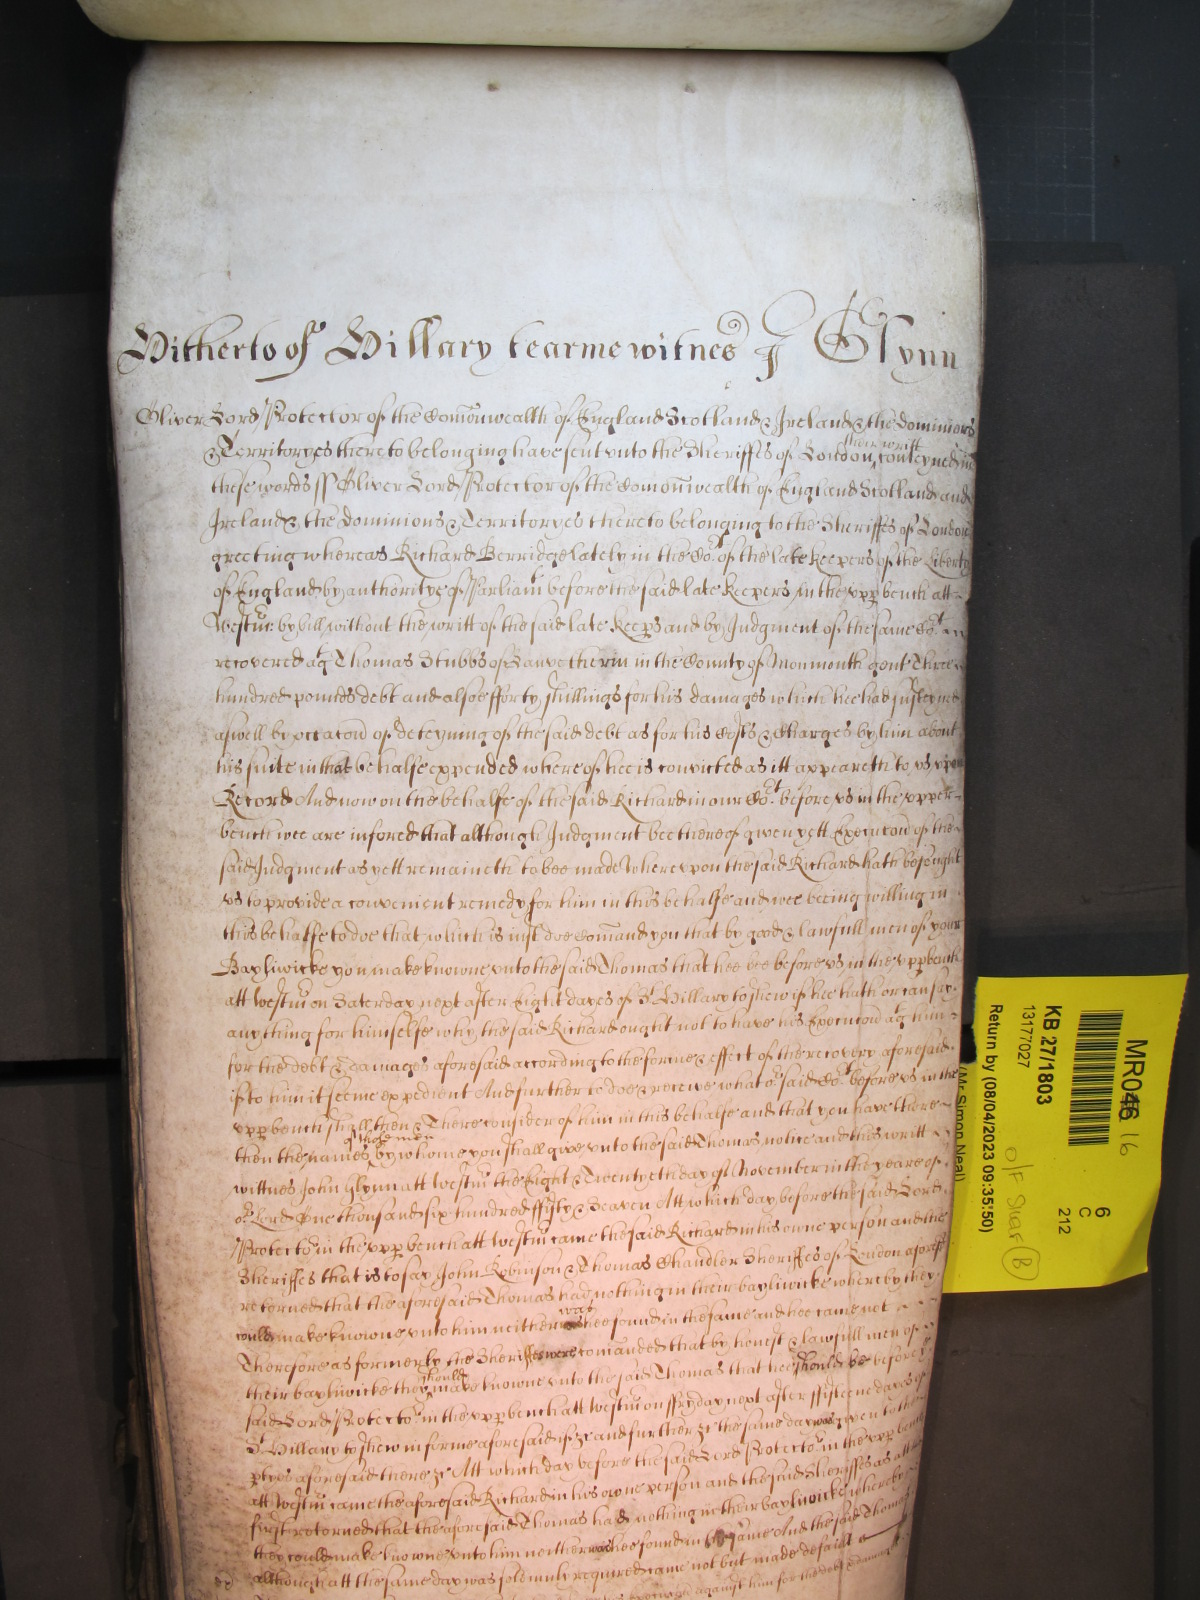 Hitherto of Hillary tearme witnes J Glynn
Oliver Lord Protector of the Comonwealth of England Scotland & Ireland & the Dominions
& Territoryes thereto belonging have sent unto the Sheriffes of London their writt conteyned in
these words ss Oliver Lord Protector of the Comonwealth of England Scotland and
Ireland & the Dominions & Territoryes thereto belonging to the Sheriffes of London
greeting whereas Richard Berridge lately in the Cot of the late keepers of the Liberty
of England by authoritye of Parliamt before the said late keepers in the vpp bench att
Westmr by bill without the writt of the said late keeps and by Judgment of the same Cot
recovered agt Thomas Stubbs of in the County of Monmouth gent Three
hundred pounds debt and alsoe fforty shillings for his damages which hee had susteyned
aswell by occacon of deteyning of the said debt as for his Costs & Charges by him about
his suite in that behalfe expended whereof hee is convicted as itt appeareth to vs vpon
Record And now on the behalfe of the said Richard in our Cot before vs in the vpper
bench wee are infored that allthough Judgment bee thereof given yett Execucon of the
said Judgment as yett remaineth to bee made Wherevpon the said Richard hath besought
vs to provide a convenient remedy for him in this behalfe and wee being willing in
this behalfe to doe that which is just doe Comand you that by good & lawfull men of your
Bayliwicke you make knowne vnto the said Thomas that hee bee before vs in the vpp bench
att Westmr on Saterday next after Eight dayes of St Hillary to shew if hee hath or can say
any thing for himselfe why the said Richard ought not to have his Execucon agt him
for the debt & damages aforesaid according to the forme & effect of the recovery aforesaid
if to him it seeme expedient And further to doe & receive what or said Cot before vs in the
vpp bench shall then & There consider of him in this behalfe and that you have there
then the names of those men by whome you shall give vnto the said Thomas notice and this writt
wittnes John Glynn att Westmr the Eight & Twentyeth day of November in the yeare of
or Lord One thousand six hundred ffifty & Seaven Att which day before the said Lord
Protector in the vpp bench att Westmr came the said Richard in his owne person and the
Sheriffes that is to say John Robinson & Thomas Chandler Sheriffes of London aforesd
retorned that the aforesaid Thomas had nothing in their bayliwicke whereby they
could make knowne vnto him neither was hee found in the same and hee came not
Therefore as formerly the Sheriffes were comanded that by honest & lawfull men of
their bayliwicke they should make knowne vnto the said Thomas that hee should be before ye
said Lord Protector in the vpp bench att Westmr on ffryday next after ffifteene dayes of
St Hillary to shew in forme aforesaid if &c and further &c the same day was given to the
ptyes aforesaid there &c Att which day before the said Lord Protector in the vpp bench
att Westmr came the aforesaid Richard in his owne person and the said Sheriffes as att
first retorned that the aforesaid Thomas had nothing in their bayliwicke whereby
they could make knowne vnto him neither was hee found in the same And the said Thomas
allthough att the same day was solemnly required came not but made default
against him for the debt & damages
MR046 16
6
C
212
KB 27/1803
13177027
Return by (08/04/2023 09:35:50)
(Mr Simon Neal)
B